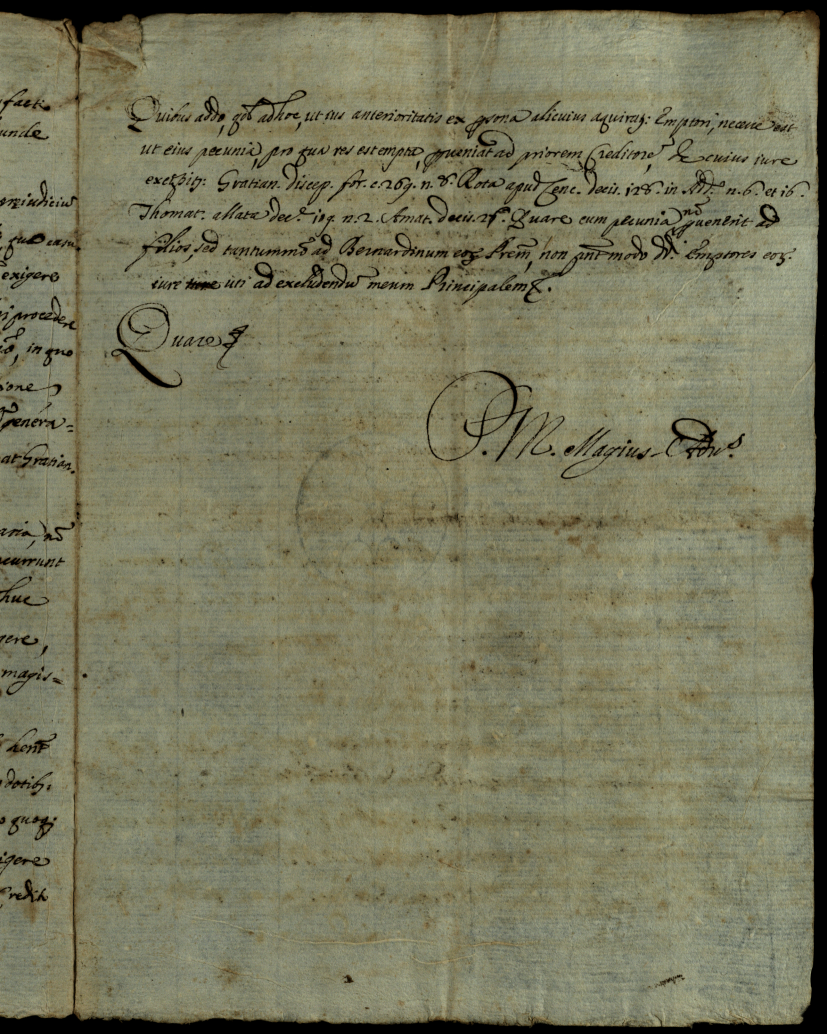 facti
unde
præiudiciū
exigere
procedere
in quo
ione
genera=
at Gratian.
aria, nō
currunt
huc
gere,
magis=
hent
dotib;
quoq;
igere
Credit
Quibus addo, qđ adhoc, ut ius anterioritatis ex psona alicuius aquiraŧ: Emptori, necesse est
ut eius pecunia, pro qua res est empta, pueniat ad priorem Creditorē, de cuius iure
Gratian. discep. for. c. 269. n. 8. Rota apud Cenc. decis. 128. in Add. n. 6. et 16.
Thomat. allata dec. 19. n. 2. Amat. decis. Quare cum pecunia nō puenerit ad
filios, sed tantummō ad Bernardinum eoꝝ Prem, non pnt modo Dd. Emptores eoꝝ
iure uti ad excludendū meum Principalem.
Quare
P. M. Magius Adv.s